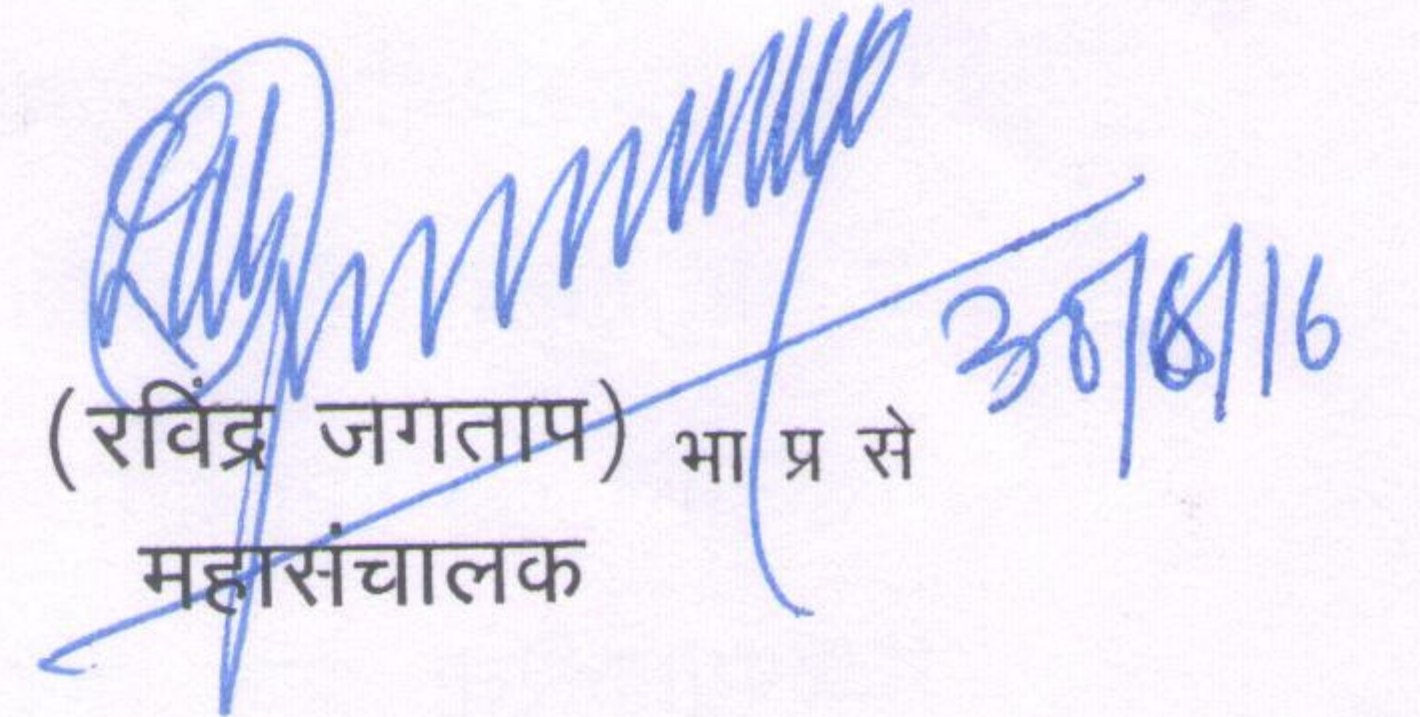 30/8/16
(रविंद्र जगताप) भा प्र से
महासंचालक